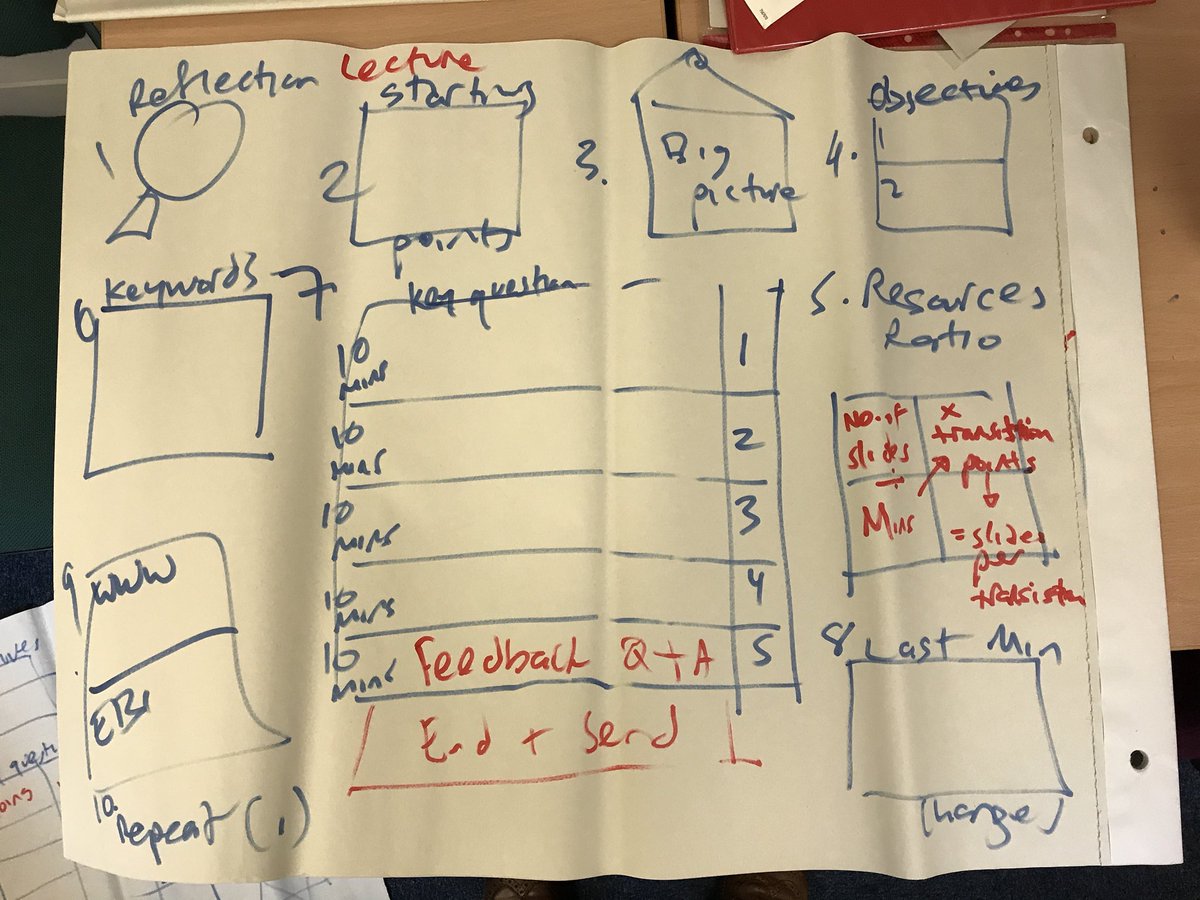 Lecture
Reflection
1
2
starting
points
3.
Big
picture
4.
Objectives
1
2
5. Resources
Ratio
No. of
slides
÷
Mins
x
transition
points
= slides
per
6
Keywords
7
key question
10
Mins
1
10
Mins
2
10
Mins
3
10
Mins
4
10
Mins
Feedback Q+A
5
End + Send
8 Last Min
9
WWW
EBI
10.
Repeat (1)